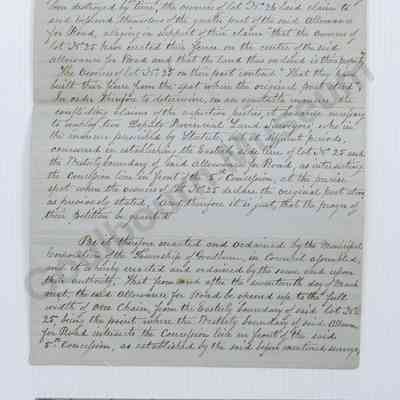 been destroyed by time", the owners of lot No 26 laid claim to
and defraud themselves of the greater part of the said Allowance
for Road, alleging in support of their claim "that the owners of
lot No 25 have erected their fence on the centre of the said
allowance for Road and that the land thus enclosed is their property"
"The Owners of lot No 25 on their part contend" That they have
built their fence from the spot where the original post stood"
In order therefore to determine, in an equitable manner, the
conflicting claims of the respective parties, it became necessary
to employ two Deputy Provincial Land Surveyors, who in
the manner prescribed by Statute, and at different periods,
concurred in establishing the Easterly side line of lot No 25 and
the Westerly boundary of said Allowance for Road, as intersecting
the Concession line in front of the 5th Concession, at the precise
spot where the owners of lot No 25 declare the original post stood
as previously stated, And therefore it is just, that the prayer of
their Petition be granted.
Be it therefore enacted and ordained by the Municipal
Corporation of the Township of Goulburn, in Council assembled,
and it is hereby enacted and ordained by the same and upon
their authority, That from and after the seventeenth day of March
next, the said Allowance for Road be opened up to the full
width of One Chain, from the Easterly boundary of said lot No
25 being the point where the Westerly boundary of said Allowance
for Road intersects the Concession line in front of the said
5th Concession, as established by the said before mentioned surveys,